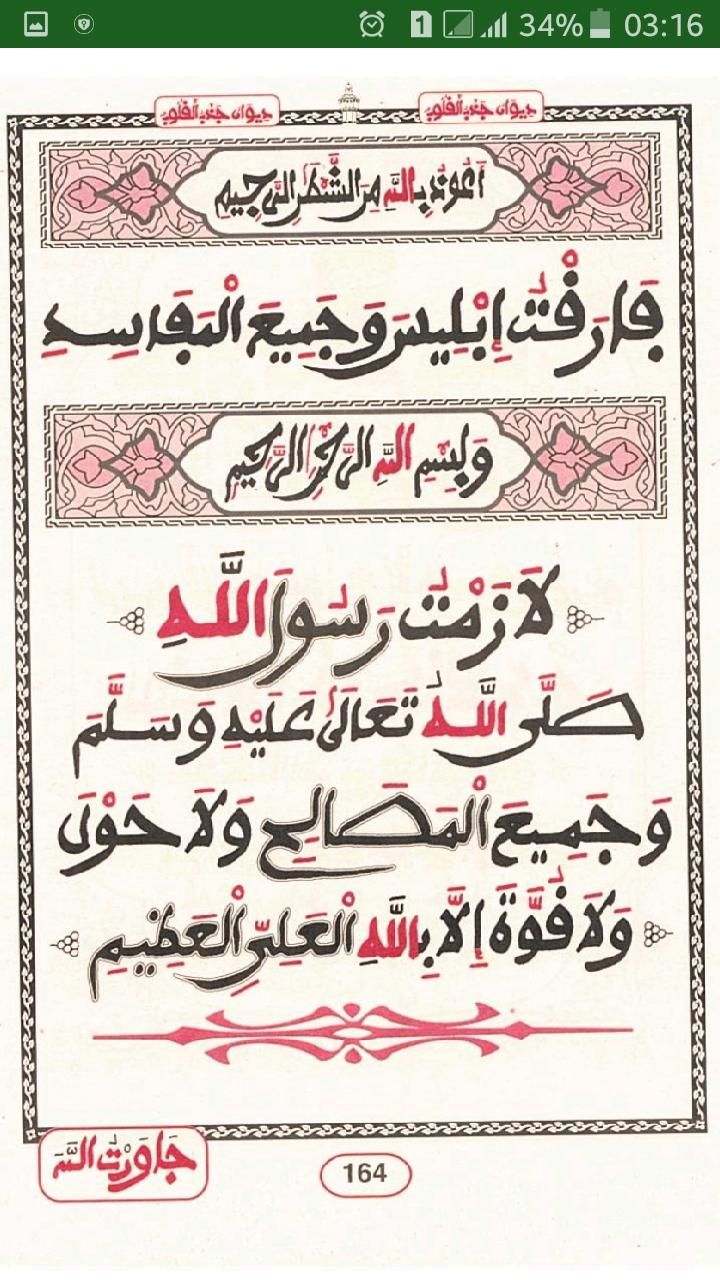 1 34% 03:16
ديوان جذب القلوب ديوان جذب القلوب
أعوذ بالله من الشيطٰن الرجيم
فَارَقْتُ إِبْلِيسَ وَجَمِيعَ الْمَفَاسِدِ
وَبِسْمِ اللهِ الرَّحْمٰنِ الرَّحِيمِ
لَازَمْتُ رَسُولَ اللَّهِ
صَلَّى اللَّهُ تَعَالَىٰ عَلَيْهِ وَسَلَّمَ
وَجَمِيعَ الْمَصَالِحِ وَلَا حَوْلَ
وَلَا قُوَّةَ إِلَّا بِاللَّهِ الْعَلِيِّ الْعَظِيمِ
جَاوَرْتُ اللهَ
164